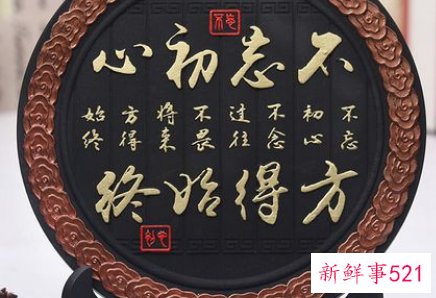 不忘初心
不忘
初心
不念
过往
不畏
将来
方得
始终
方得始终
不忘
新鲜事521